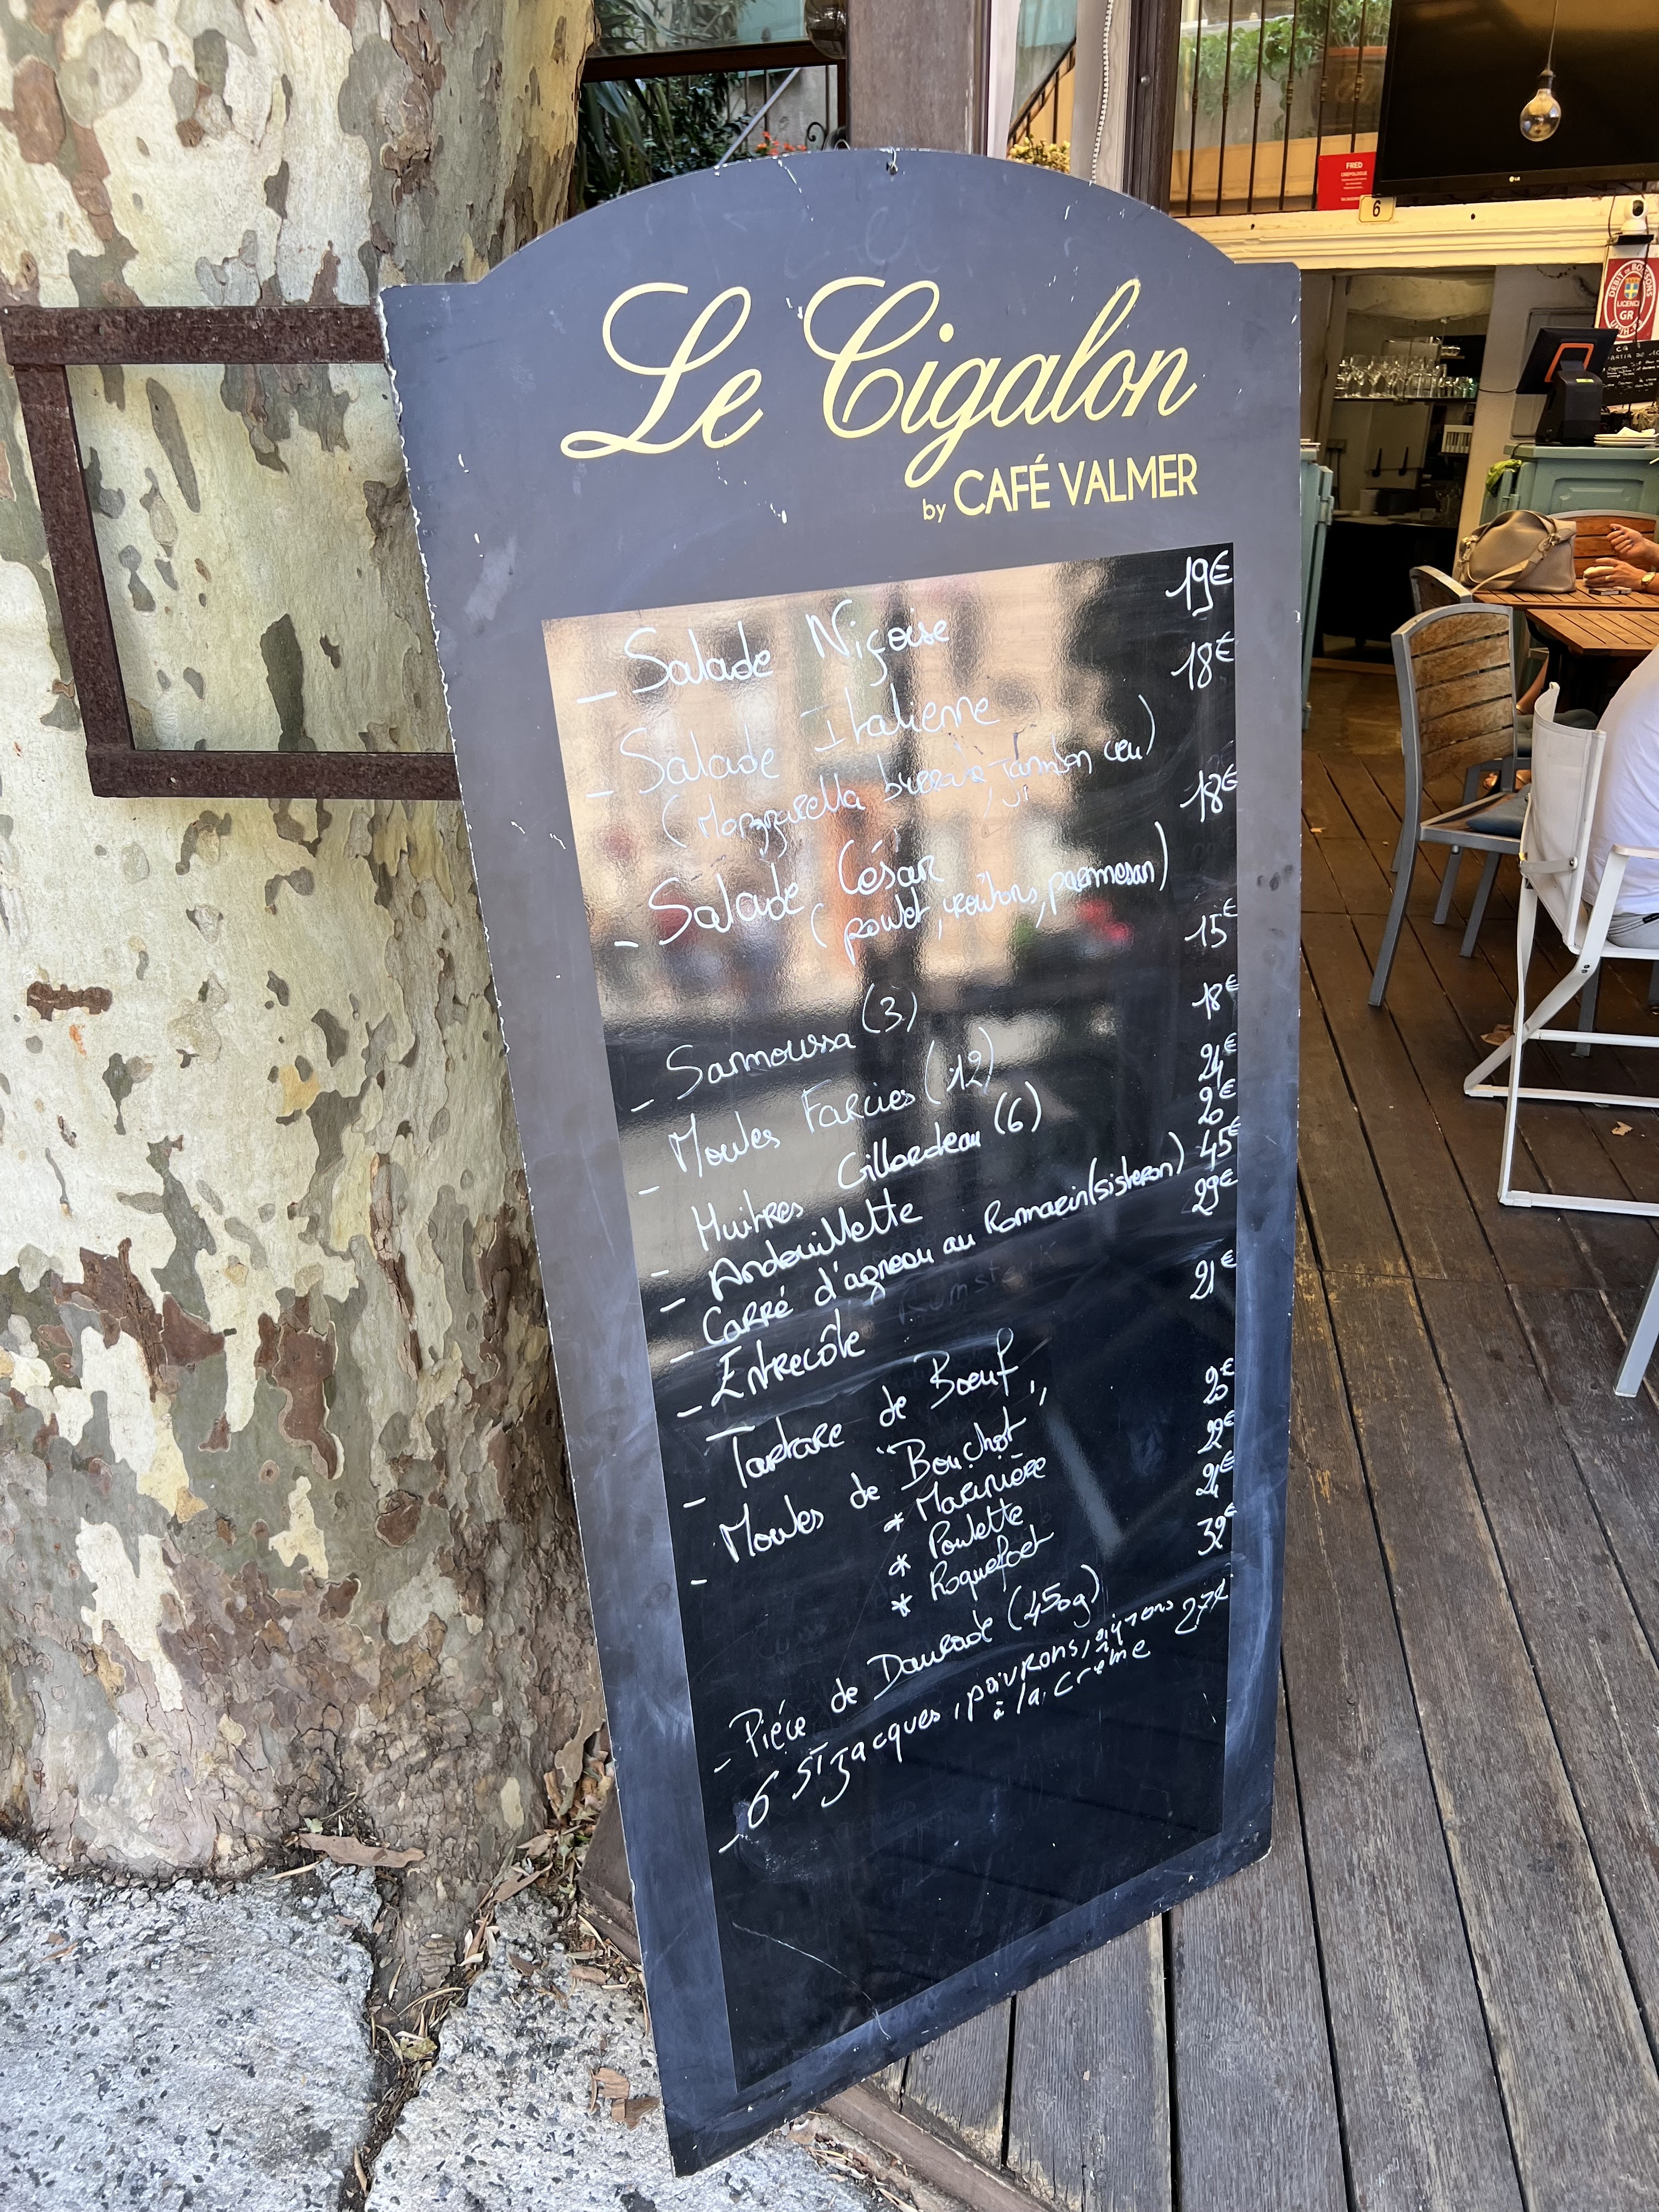 Le Cigalon
by CAFÉ VALMER
- Salade Niçoise 19€
- Salade Italienne 18€
(Mozzarella burrata, jambon cru)
- Salade César 18€
(poulet, croûtons, parmesan)
- Samoussa (3) 15€
- Moules Farcies (12) 18€
- Huitres Gillardeau (6) 24€
- Andouillette 20€
- Carré d'agneau au Romarin (sisteron) 45€
- Entrecôte 29€
- Tartare de Boeuf 21€
- Moules de "Bouchot"
* Marinière 20€
* Poulette 22€
* Roquefort 24€
- Piéce de Daurade (450g) 32€
- 6 St Jacques, poivrons, oignons 27€
à la crème
FRED
6
LG
LICENCE
GR